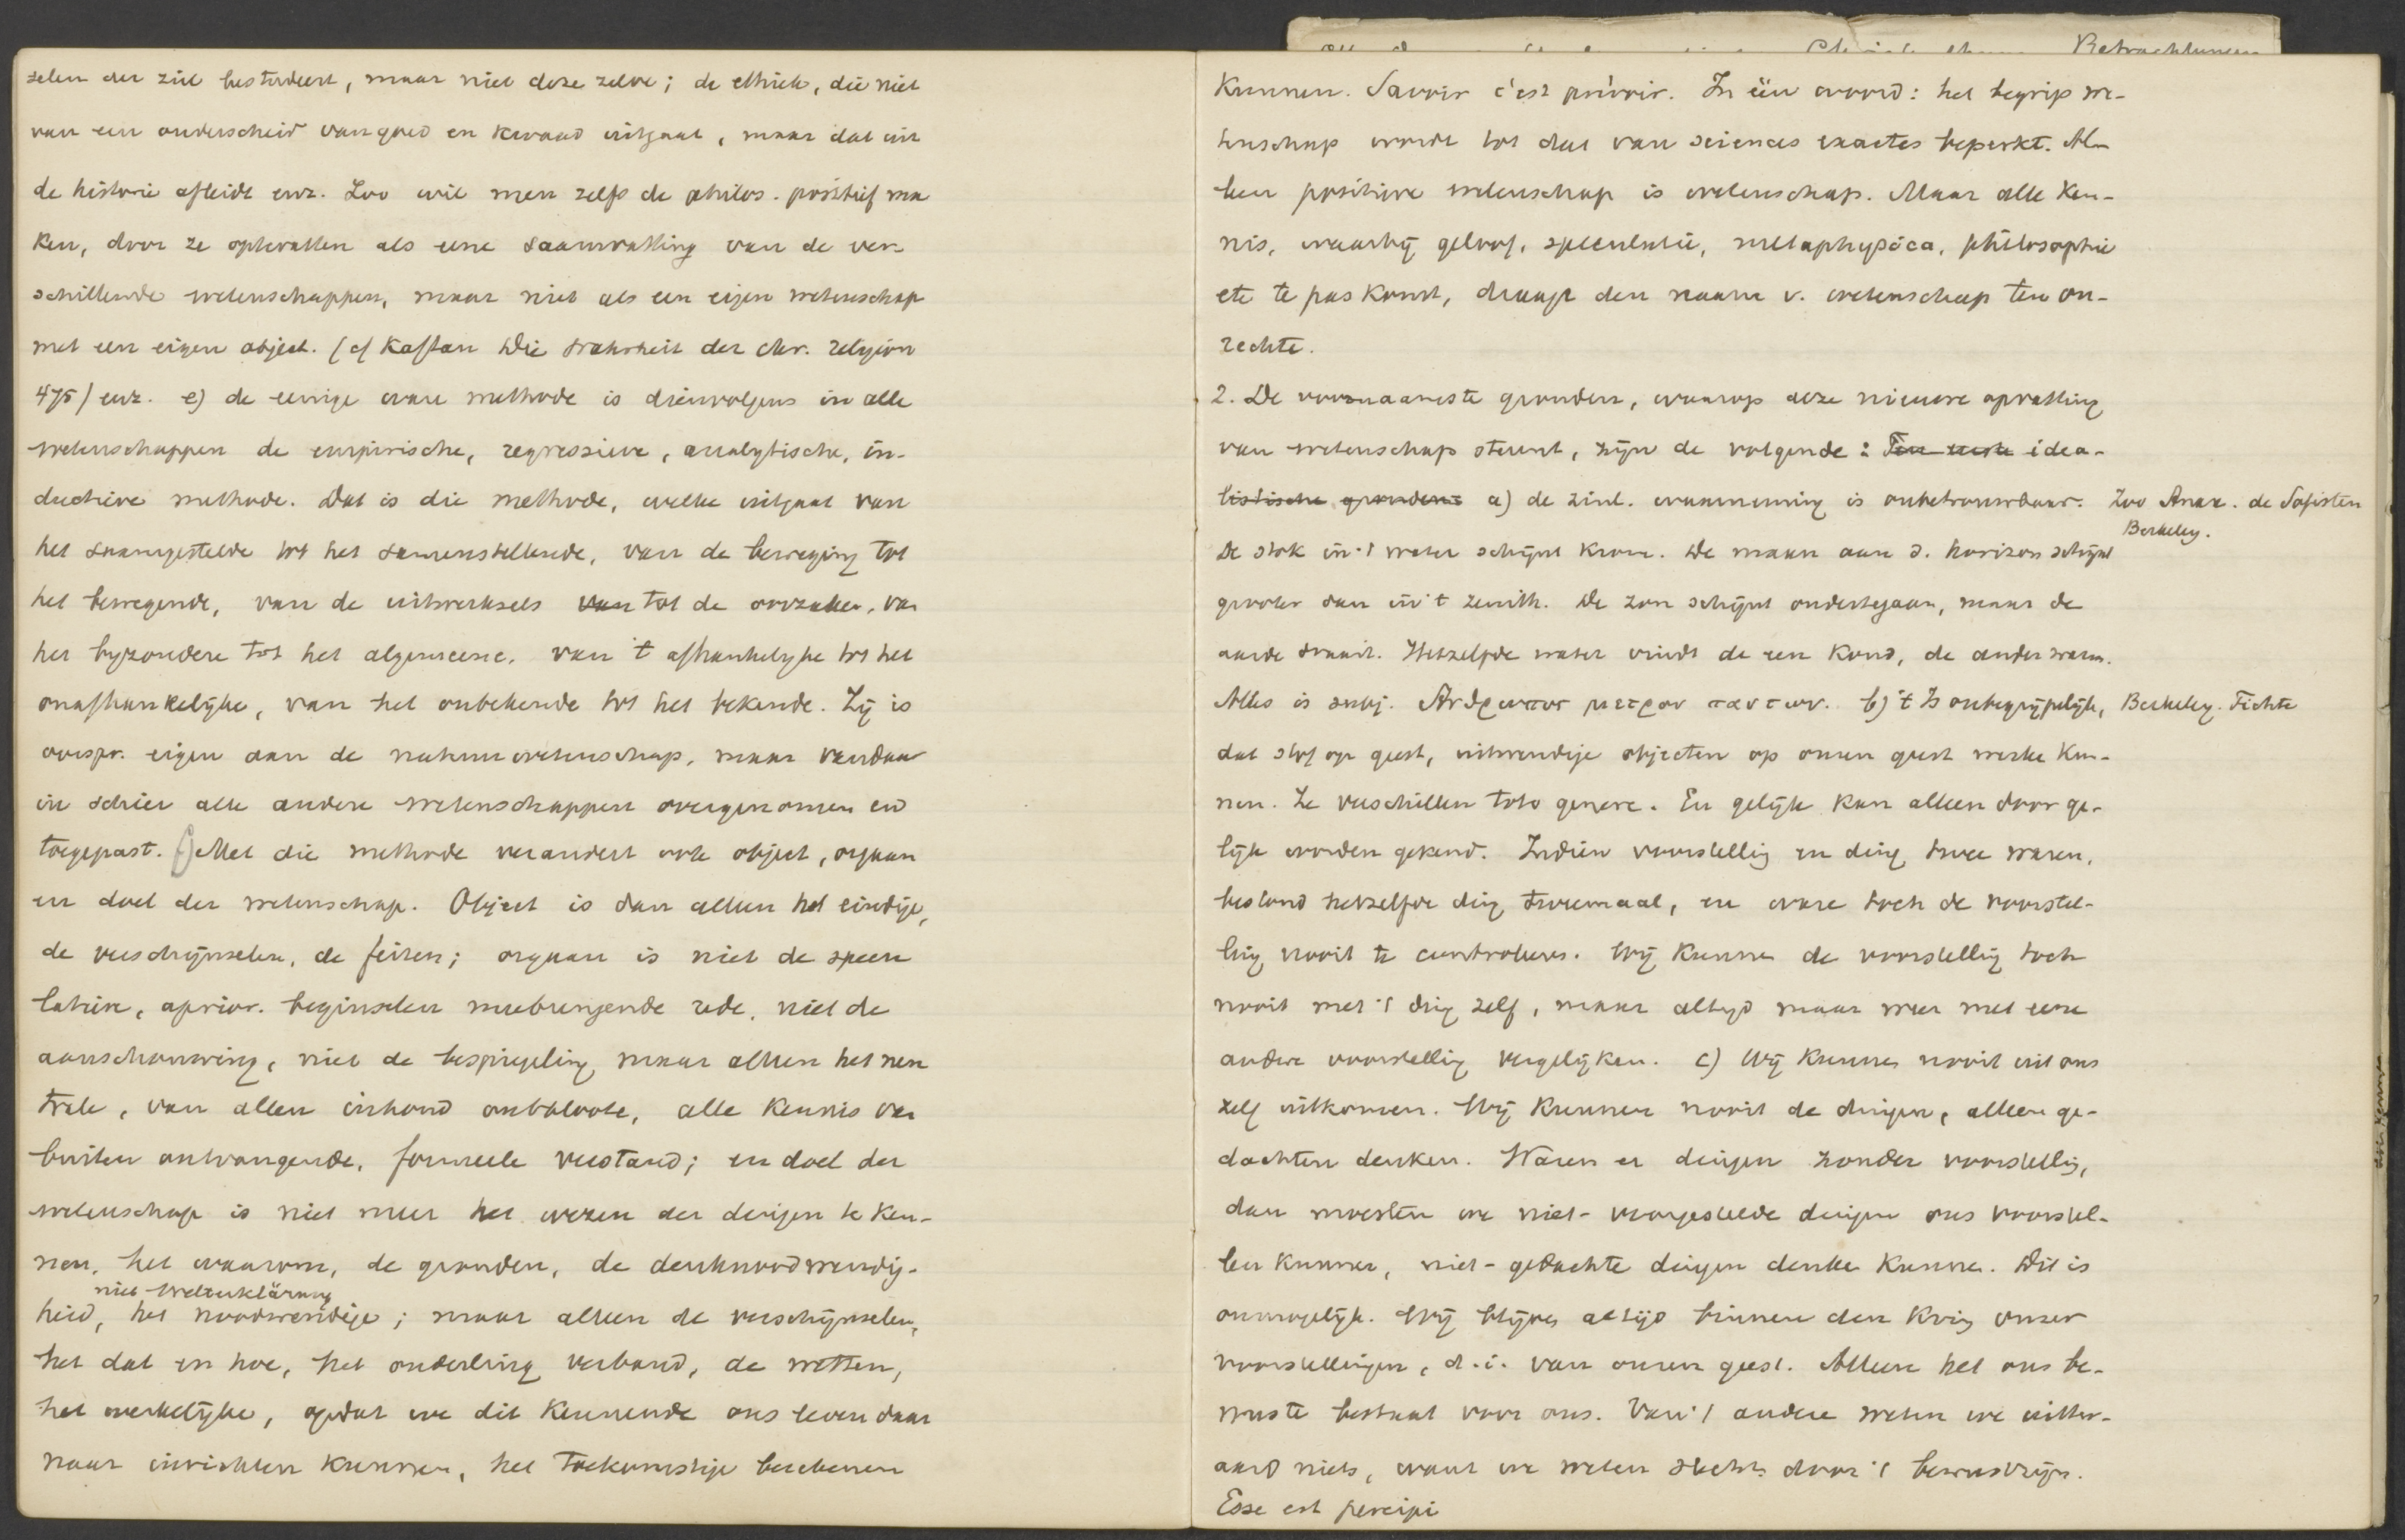 selen der ziel bestudeert, maar niet deze zelve; de ethiek, die niet
van een onderscheid van goed en kwaad uitgaat, maar dat uit
de historie afleidt enz. Zoo wil men zelfs de philos. positief ma
ken, door ze optevatten als eene saamvatting van de ver-
schillende wetenschappen, maar niet als een eigen wetenschap
met een eigen object. (cf Kaftan Die Wahrheit der chr. religion
475) enz. e) de eenige ware methode is dienvolgens in alle
wetenschappen de empirische, regressieve, analytische, in-
ductieve methode. Dat is die methode, welke uitgaat van
het saamgestelde tot het samenstellende, van de beweging tot
het bewegende, van de uitwerksels van tot de oorzaken, van
het byzondere tot het algemeene, van 't afhankelyke tot het
onafhankelijke, van het onbekende tot het bekende. Zij is
oorspr. eigen aan de natuurwetenschap, maar vandaar
in schier alle andere wetenschappen overgenomen en
toegepast. f) Met die methode verandert ook object, orgaan
en doel der wetenschap. Object is dan alleen het eindige,
de verschijnselen, de feiten; orgaan is niet de specu
latieve, aprior. beginselen meebrengende rede, niet de
aanschouwing, niet de bespiegeling maar alleen het neu
trale, van allen inhoud ontbloote, alle kennis van
buiten ontvangende, formeele verstand; en doel der
wetenschap is niet meer het wezen der dingen te ken-
nen, het waarom, de gronden, de denknoodwendig-
niet Welterklärung
heid, het noodwendige; maar alleen de verschijnselen,
het dat en hoe, het onderling verband, de wetten,
het werkelijke, opdat we dit kennende ons leven daar
naar inrichten kunnen, het toekomstige berekenen
kunnen. Savoir c'est prévoir. In één woord: het begrip we-
tenschap wordt tot dat van sciences exactes beperkt. Al-
leen positieve wetenschap is wetenschap. Maar alle ken-
nis, waarbij geloof, speculatie, metaphysica, philosophie
etc te pas komt, draagt den naam v. wetenschap ten on-
rechte.
2. De voornaamste gronden, waarop deze nieuwe opvatting
van wetenschap steunt, zijn de volgende: Ten eerste idea-
listische gronden: a) de zinl. waarneming is onbetrouwbaar. Zoo Anax. de Sofisten
Berkeley.
De stok in 't water schijnt krom. De maan aan d. horizon schijnt
grooter dan in 't zenith. De zon schijnt ondertegaan, maar de
aarde draait. Hetzelfde water vindt de een koud, de ander warm.
Alles is subj. Ανθρωπος μετρον παντων. b) 't Is onbegrijpelijk, Berkeley. Fichte
dat stof op geest, uitwendige objecten op onzen geest werke kun-
nen. Ze verschillen toto genere. En gelijk kan alleen door ge-
lijk worden gekend. Indien voorstelling en ding twee waren,
bestond hetzelfde ding tweemaal, en ware toch de voorstel-
ling nooit te controleren. Wij kunnen de voorstelling toch
nooit met 't ding zelf, maar altijd maar weer met eene
andere voorstelling vergelijken. c) Wij kunnen nooit uit ons
zelf uitkomen. Wij kunnen nooit de dingen, alleen ge-
dachten denken. Waren er dingen zonder voorstelling,
dan moesten we niet-voorgestelde dingen ons voorstel-
len kunnen, niet-gedachte dingen denken kunnen. Dit is
onmogelijk. Wij blijven altijd binnen den kring onzer
voorstellingen, d.i. van onzen geest. Alleen het ons be-
wuste bestaat voor ons. Van 't andere weten we uiter-
aard niets, want we weten slechts door 't bewustzijn.
Esse est percipi
Betrachtungen